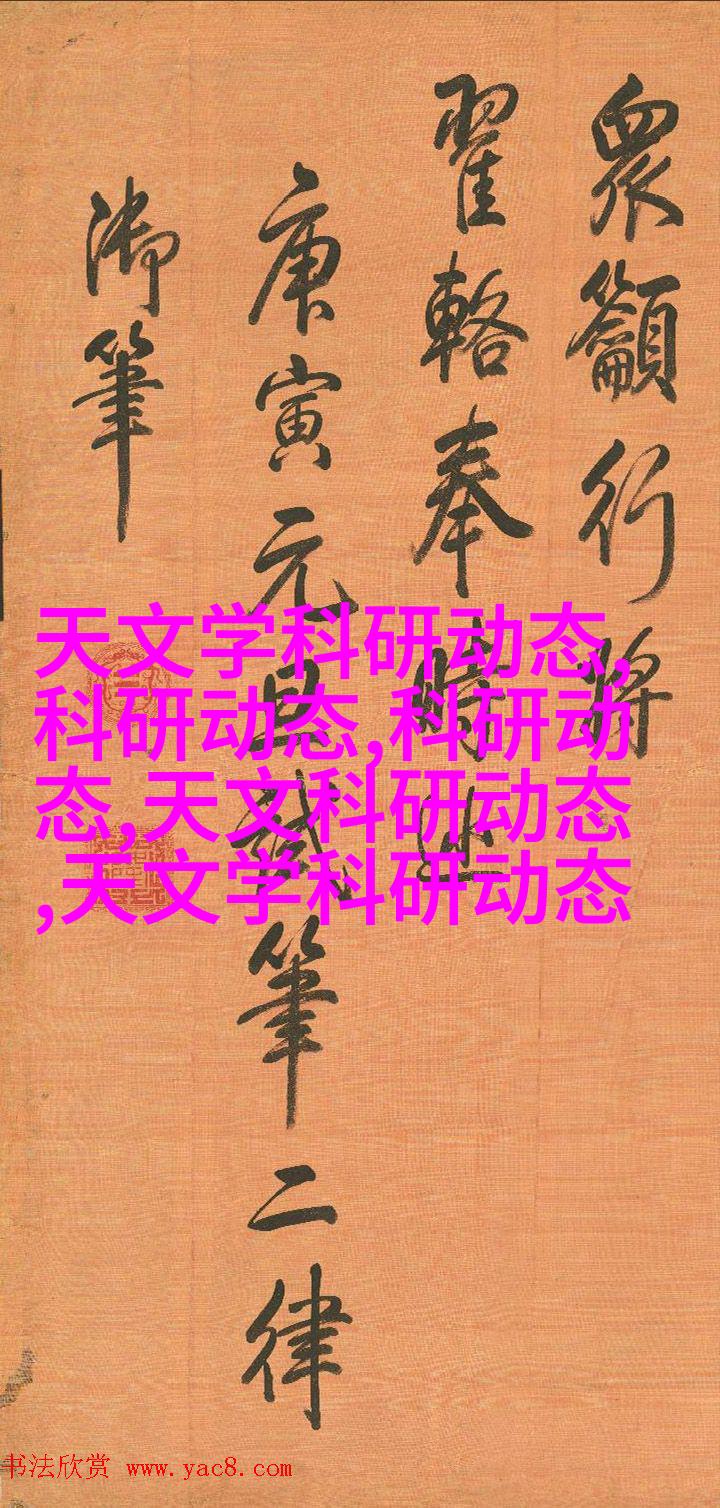 眾籲行將
翟輅奉時巡
庚寅元旦試筆二律
御筆
天文学科研动态,
科研动态,科研动
态,天文科研动态
,天文学科研动态
书法欣赏 www.yac8.com